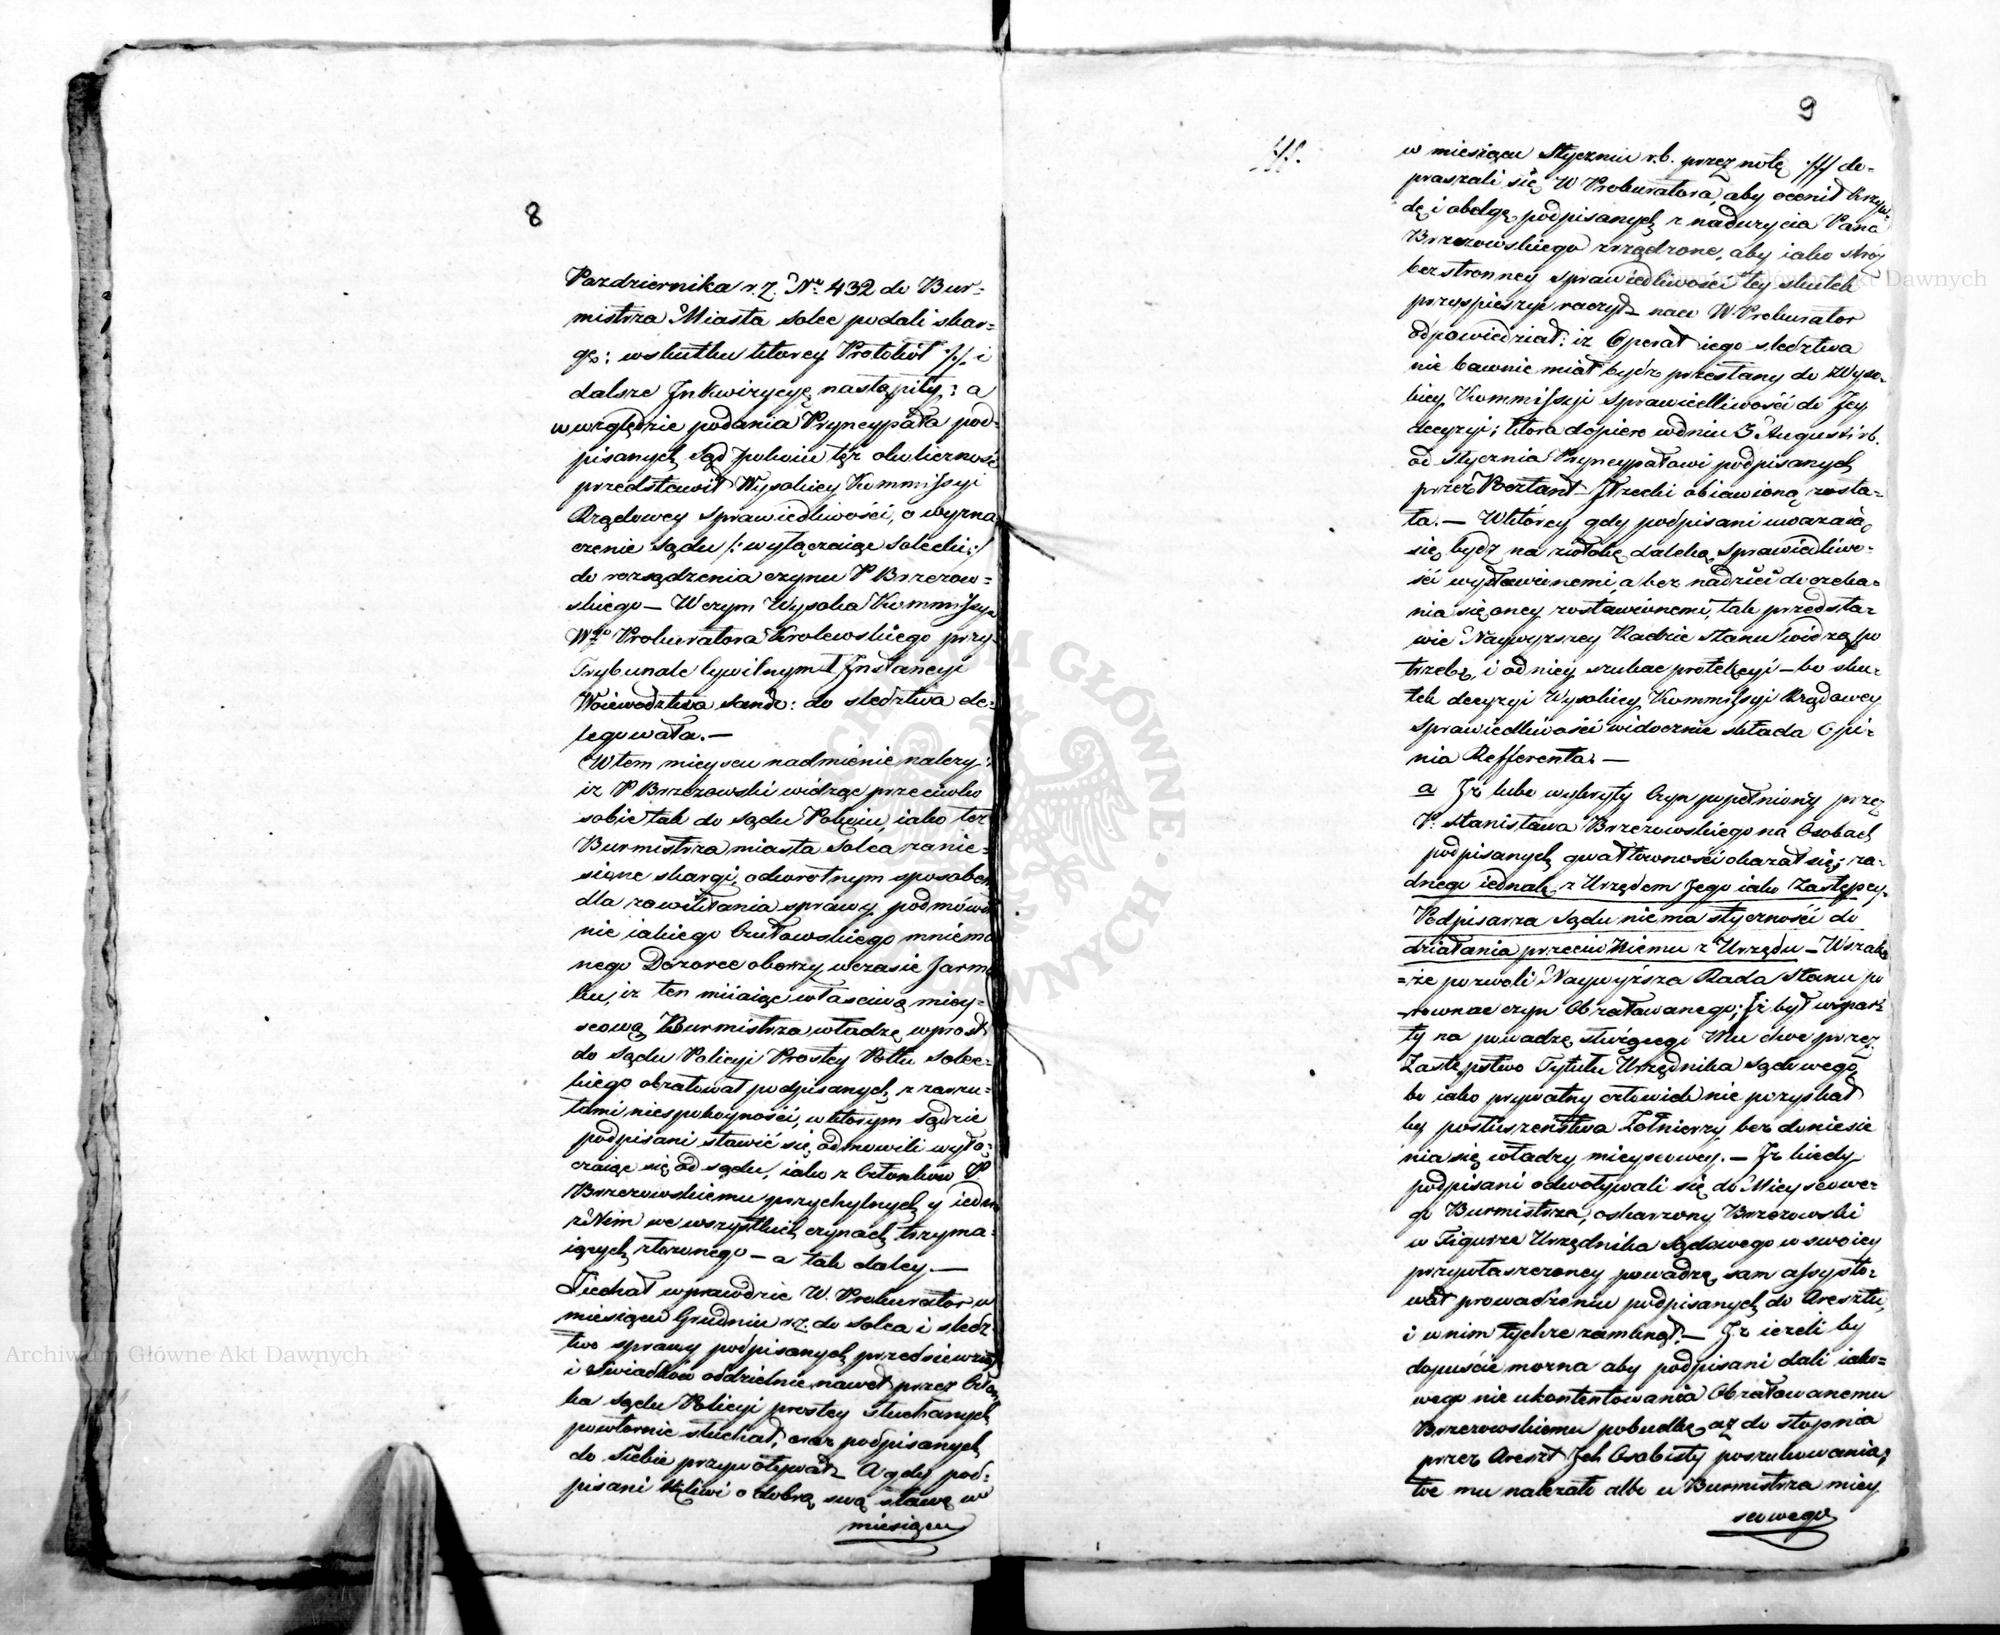 8
Pazdziernika r. z. No 432 do Bur=
mistrza Miasta Solec podali skar=
gę: wskutku ktorey Protokół i
dalsze Jnkwizycye nastąpiły; a
wwzględzie podania Pryncypała pod=
pisanych Sąd pokoiu też okoliczność
przedstawił Wysokiey Kommissyi
Rządowey Sprawiedliwości, o wyzna
czenie Sądu /: wyłączaiąc Solecki :/
do rozsądzenia czynu P Brzezow=
skiego — W czym Wysoka Kommissya
Wgo Prokuratora Krolewskiego przy
Trybunale Cywilnym I Jnstancyi
Woiewodztwa Sando: do sledztwa de=
legowała. —
W tem mieyscu nadmienić należy:
iż P Brzezowski widząc przeciwko
sobie tak do Sądu Pokoiu, iako też
Burmistrza miasta Solca zanie=
sione skargi, odwrotnym sposobem
dla zawikłania sprawy podmówił
nieiakiego Czułowskiego mniema
nego Dozorcę oberzy w czasie Jarma
ku, iż ten miiaiąc właściwą miey=
scową Burmistrza władzę wprost
do Sądu Policyi Prostey Pottu Solec=
kiego obżałował podpisanych z zarzu=
tami niespokoyności, w ktorym Sądzie
podpisani stawić się odmowili wyłą=
czaiąc się od Sądu, iako z Członków P.
Brzezowskiemu przychylnych y iedno
z Nim we wszystkich czynach trzyma=
iących złożonego — a tak daley. —
Ziechał wprawdzie W. Prokurator w
miesiącu Grudniu r. z. do Solca i sledz
two sprawy podpisanych przedsięwziął
i Swiadków oddzielnie nawet przez Człon
ka Sądu Policyi prostey słuchanych
powtornie słuchał, oraz podpisanych
do Siebie przywoływał — A gdy pod=
pisani tkliwi o dobrą swą sławę w
miesiącu
9
w miesiącu Styczniu r. b. przez notę do=
praszali się W Prokuratora, aby ocenił krzyw=
dę i obelgę podpisanych z nadużycia Pana
Brzezowskiego zrządzone, aby iako stróż
bezstronney sprawiedliwości tey skutek
przyspieszyć raczył — na co W Prokurator
odpowiedział: iż Operat iego sledztwa
nie bawnie miał bydź przesłany do Wyso=
kiey Kommissyi Sprawiedliwości do Jey
decyzyi; ktora dopiero w dniu 3 Augusti r. b.
od Stycznia Pryncypałowi podpisanych
przez Pocztamt Jłżecki obiawioną zosta=
ła. — W ktorey gdy podpisani uważaią
się bydz na zwłokę daleką Sprawiedliwo=
ści wystawionemi, a bez nadziei doczeka=
nia się oney zostawionemi, tak przedsta=
wić Naywyższey Radzie Stanu widzą po
trzebę, i od niey szukać protekcyi — bo sku=
tek decyzyi Wysokiey Kommissyi Rządowey
Sprawiedliwości widocznie składa Opi=
nia Refferenta. —
a Jż lubo wykryty Czyn popełniony przez
P. Stanisława Brzezowskiego na Osobach
podpisanych gwałtowności okazał się; za=
dnego iednak z Urzędem Jego iako Zastępcy
Podpisarza Sądu niema styczności do
działania przeciw Niemu z Urzędu — Wszak
=że pozwoli Naywyższa Rada Stanu po
rownac czyn Obżałowanego; Jż był wspar=
ty na powadze służącey Mu choc przez
Zastępstwo Tytułu Urzędnika Sądowego
bo iako prywatny człowiek nie pozyskał
by posłuszeństwa Żołnierzy bez doniesie
nia się władzy mieyscowey. — Jż kiedy
podpisani odwoływali się do Mieyscowe=
go Burmistrza, oskarzony Brzezowski
w Figurze Urzędnika Sądowego w swoiey
przywłaszczoney powadze sam assysto=
wał prowadzeniu podpisanych do Aresztu
i w nim tychże zamknął. — Jż iezeli by
dopuścić można aby podpisani dali iako=
wego nieukontentowania Obżałowanemu
Brzezowskiemu pobudkę aż do stopnia
przez Areszt Jch Osobisty poszukowania;
to mu należało albo u Burmistrza miey
scowego